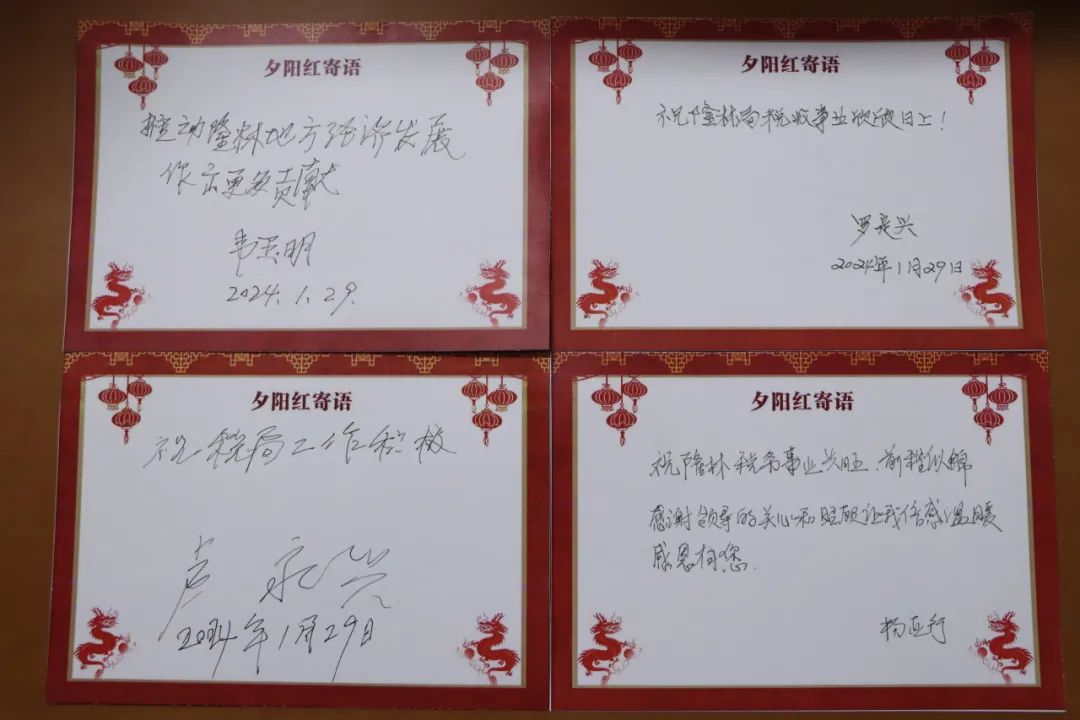 夕阳红寄语
推动隆林地方经济发展
作出更多贡献
韦玉明
2024.1.29.
夕阳红寄语
祝隆林局税收事业欣欣日上!
罗是兴
2024年1月29日
夕阳红寄语
祝税局工作积极
卢永兴
2024年1月29日
夕阳红寄语
祝隆林税务事业兴旺、前程似锦
感谢领导的关心和照顾让我倍感温暖
感恩有您.
杨亚行